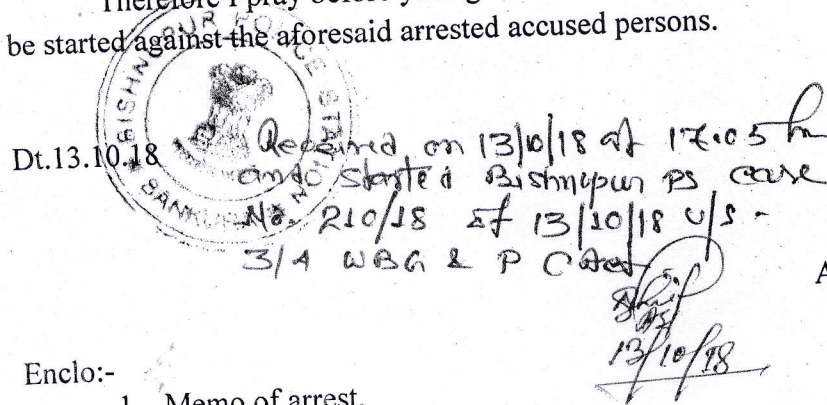 Therefore I pray before
be started against the aforesaid arrested accused persons.
BISHNUPUR POLICE STATION
BANKURA
Dt.13.10.18
Received on 13/10/18 at 17.05 hr
and started Bishnupur PS case
No. 210/18 dt 13/10/18 u/s -
3/4 WBG & P C Act
13/10/18
Enclo:-
1. Memo of arrest.